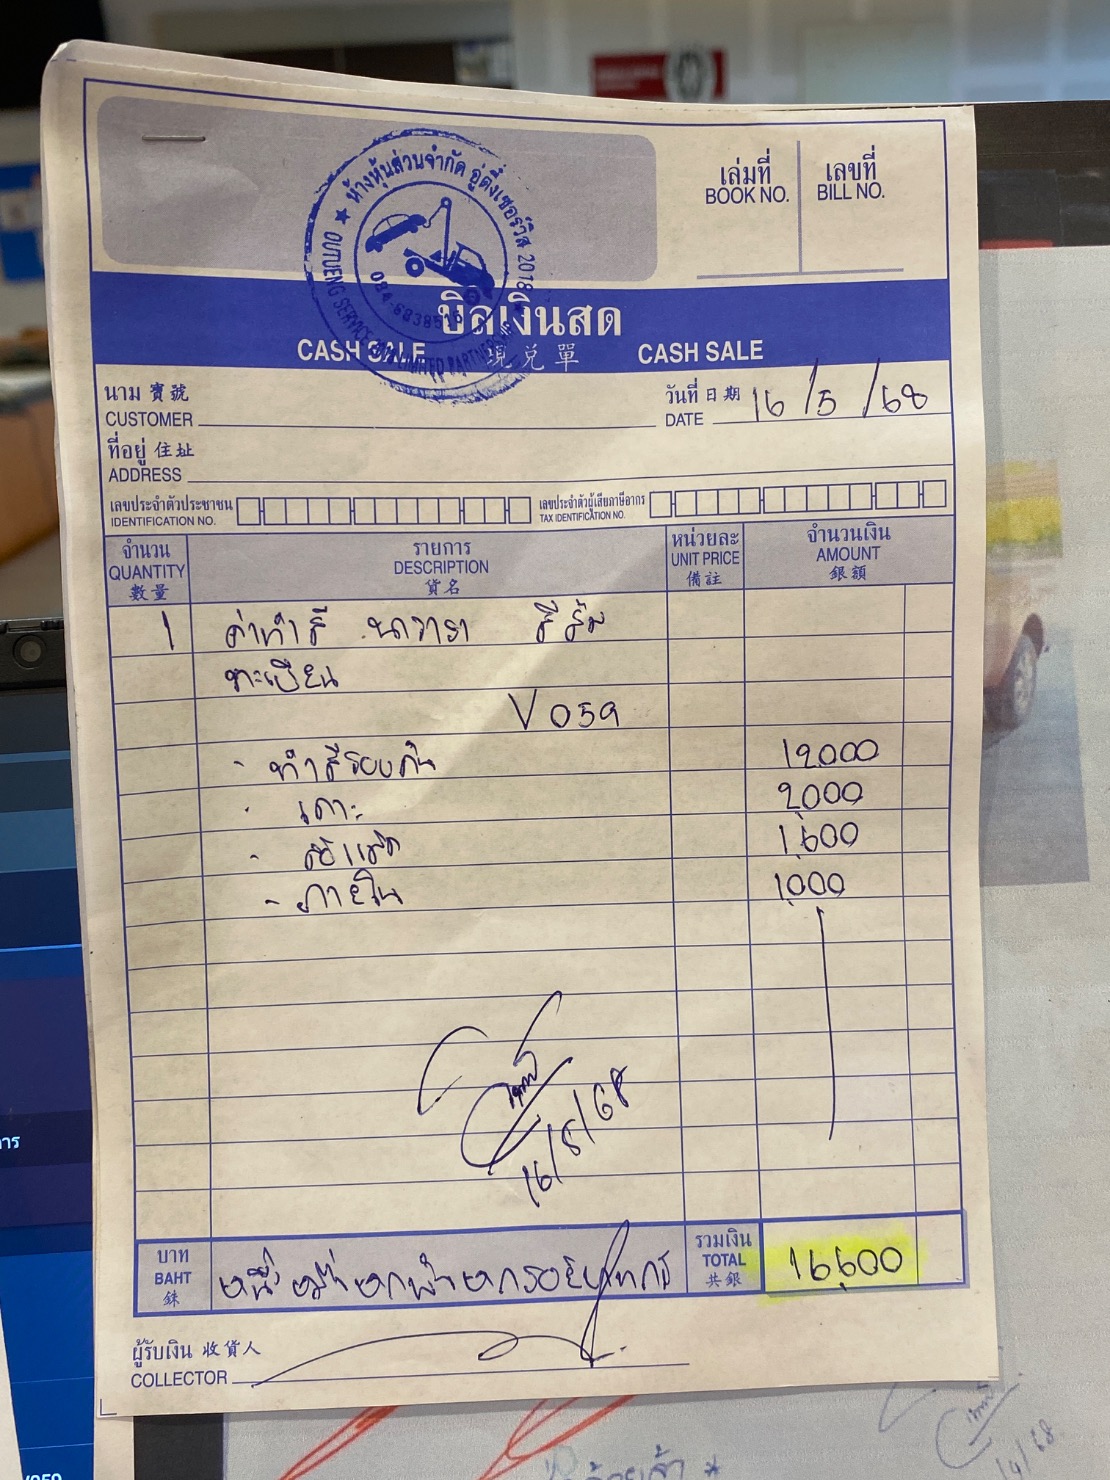 ห้างหุ้นส่วนจำกัด อู่ตึ๋งเซอร์วิส 2018
OUTUENG SERVICE LIMITED PARTNERSHIP
เล่มที่
BOOK NO.
เลขที่
BILL NO.
บิลเงินสด
CASH SALE 現兌單 CASH SALE
นาม 寳號
CUSTOMER
วันที่ 日期 16/5/68
DATE
ที่อยู่ 住址
ADDRESS
เลขประจำตัวประชาชน
IDENTIFICATION NO.
เลขประจำตัวผู้เสียภาษีอากร
TAX IDENTIFICATION NO.
จำนวน
QUANTITY
數量
รายการ
DESCRIPTION
貨名
หน่วยละ
UNIT PRICE
備註
จำนวนเงิน
AMOUNT
銀額
1 ค่าทำสี นาวารา สีส้ม
ทะเบียน
V059
- ทำสีรอบคัน 12000
- เคาะ 2000
- 1,600
- ภายใน 1,000
16/5/68
บาท
BAHT
銖
หนึ่งหมื่นหกพันหกร้อยบาทถ้วน
รวมเงิน
TOTAL
共銀
16,600
ผู้รับเงิน 收貨人
COLLECTOR